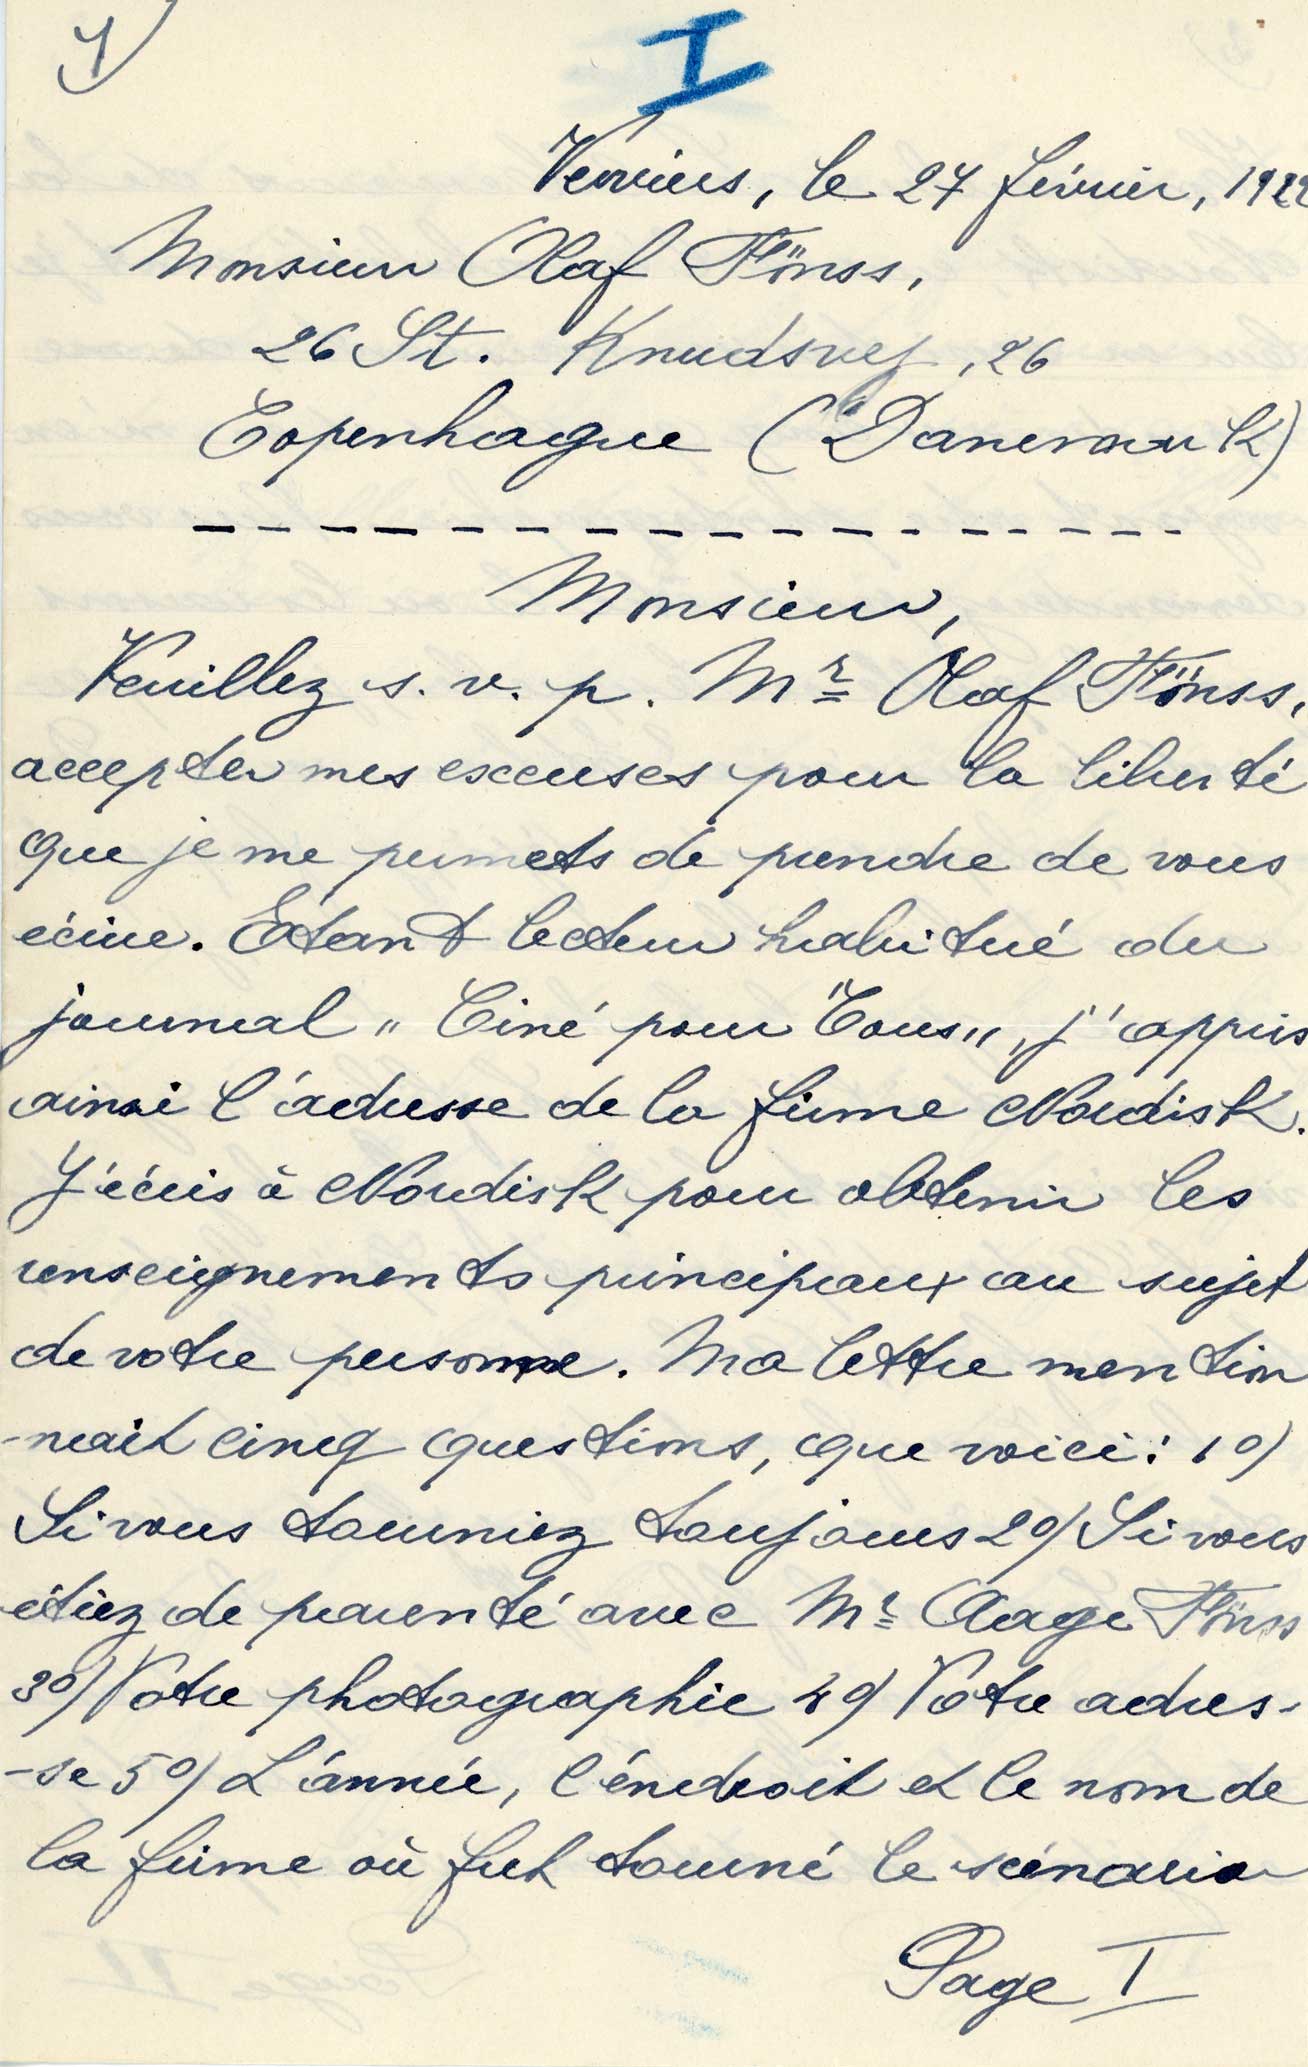 1)
I
Verviers, le 27 février, 1922
Monsieur Olaf Fönss,
26 St. Knudsvej, 26
Copenhague (Danemark)
Monsieur,
Veuillez s. v. p. Mr Olaf Fönss,
accepter mes excuses pour la liberté
que je me permets de prendre de vous
écrire. Etant lecteur habitué du
journal „ Ciné pour Tous„, j'appris
ainsi l'adresse de la firme Nordisk.
J'écris à Nordisk pour obtenir les
renseignements principaux au sujet
de votre personne. Ma lettre mention
-nait cinq questions, que voici: 1º)
Si vous tourniez toujours 2º) Si vous
étiez de parenté avec Mr Aage Fönss
3º) Votre photographie 4º) Votre adres-
-se 5º) L'année, l'éndroit et le nom de
la firme où fut tourné le scénario
Page I